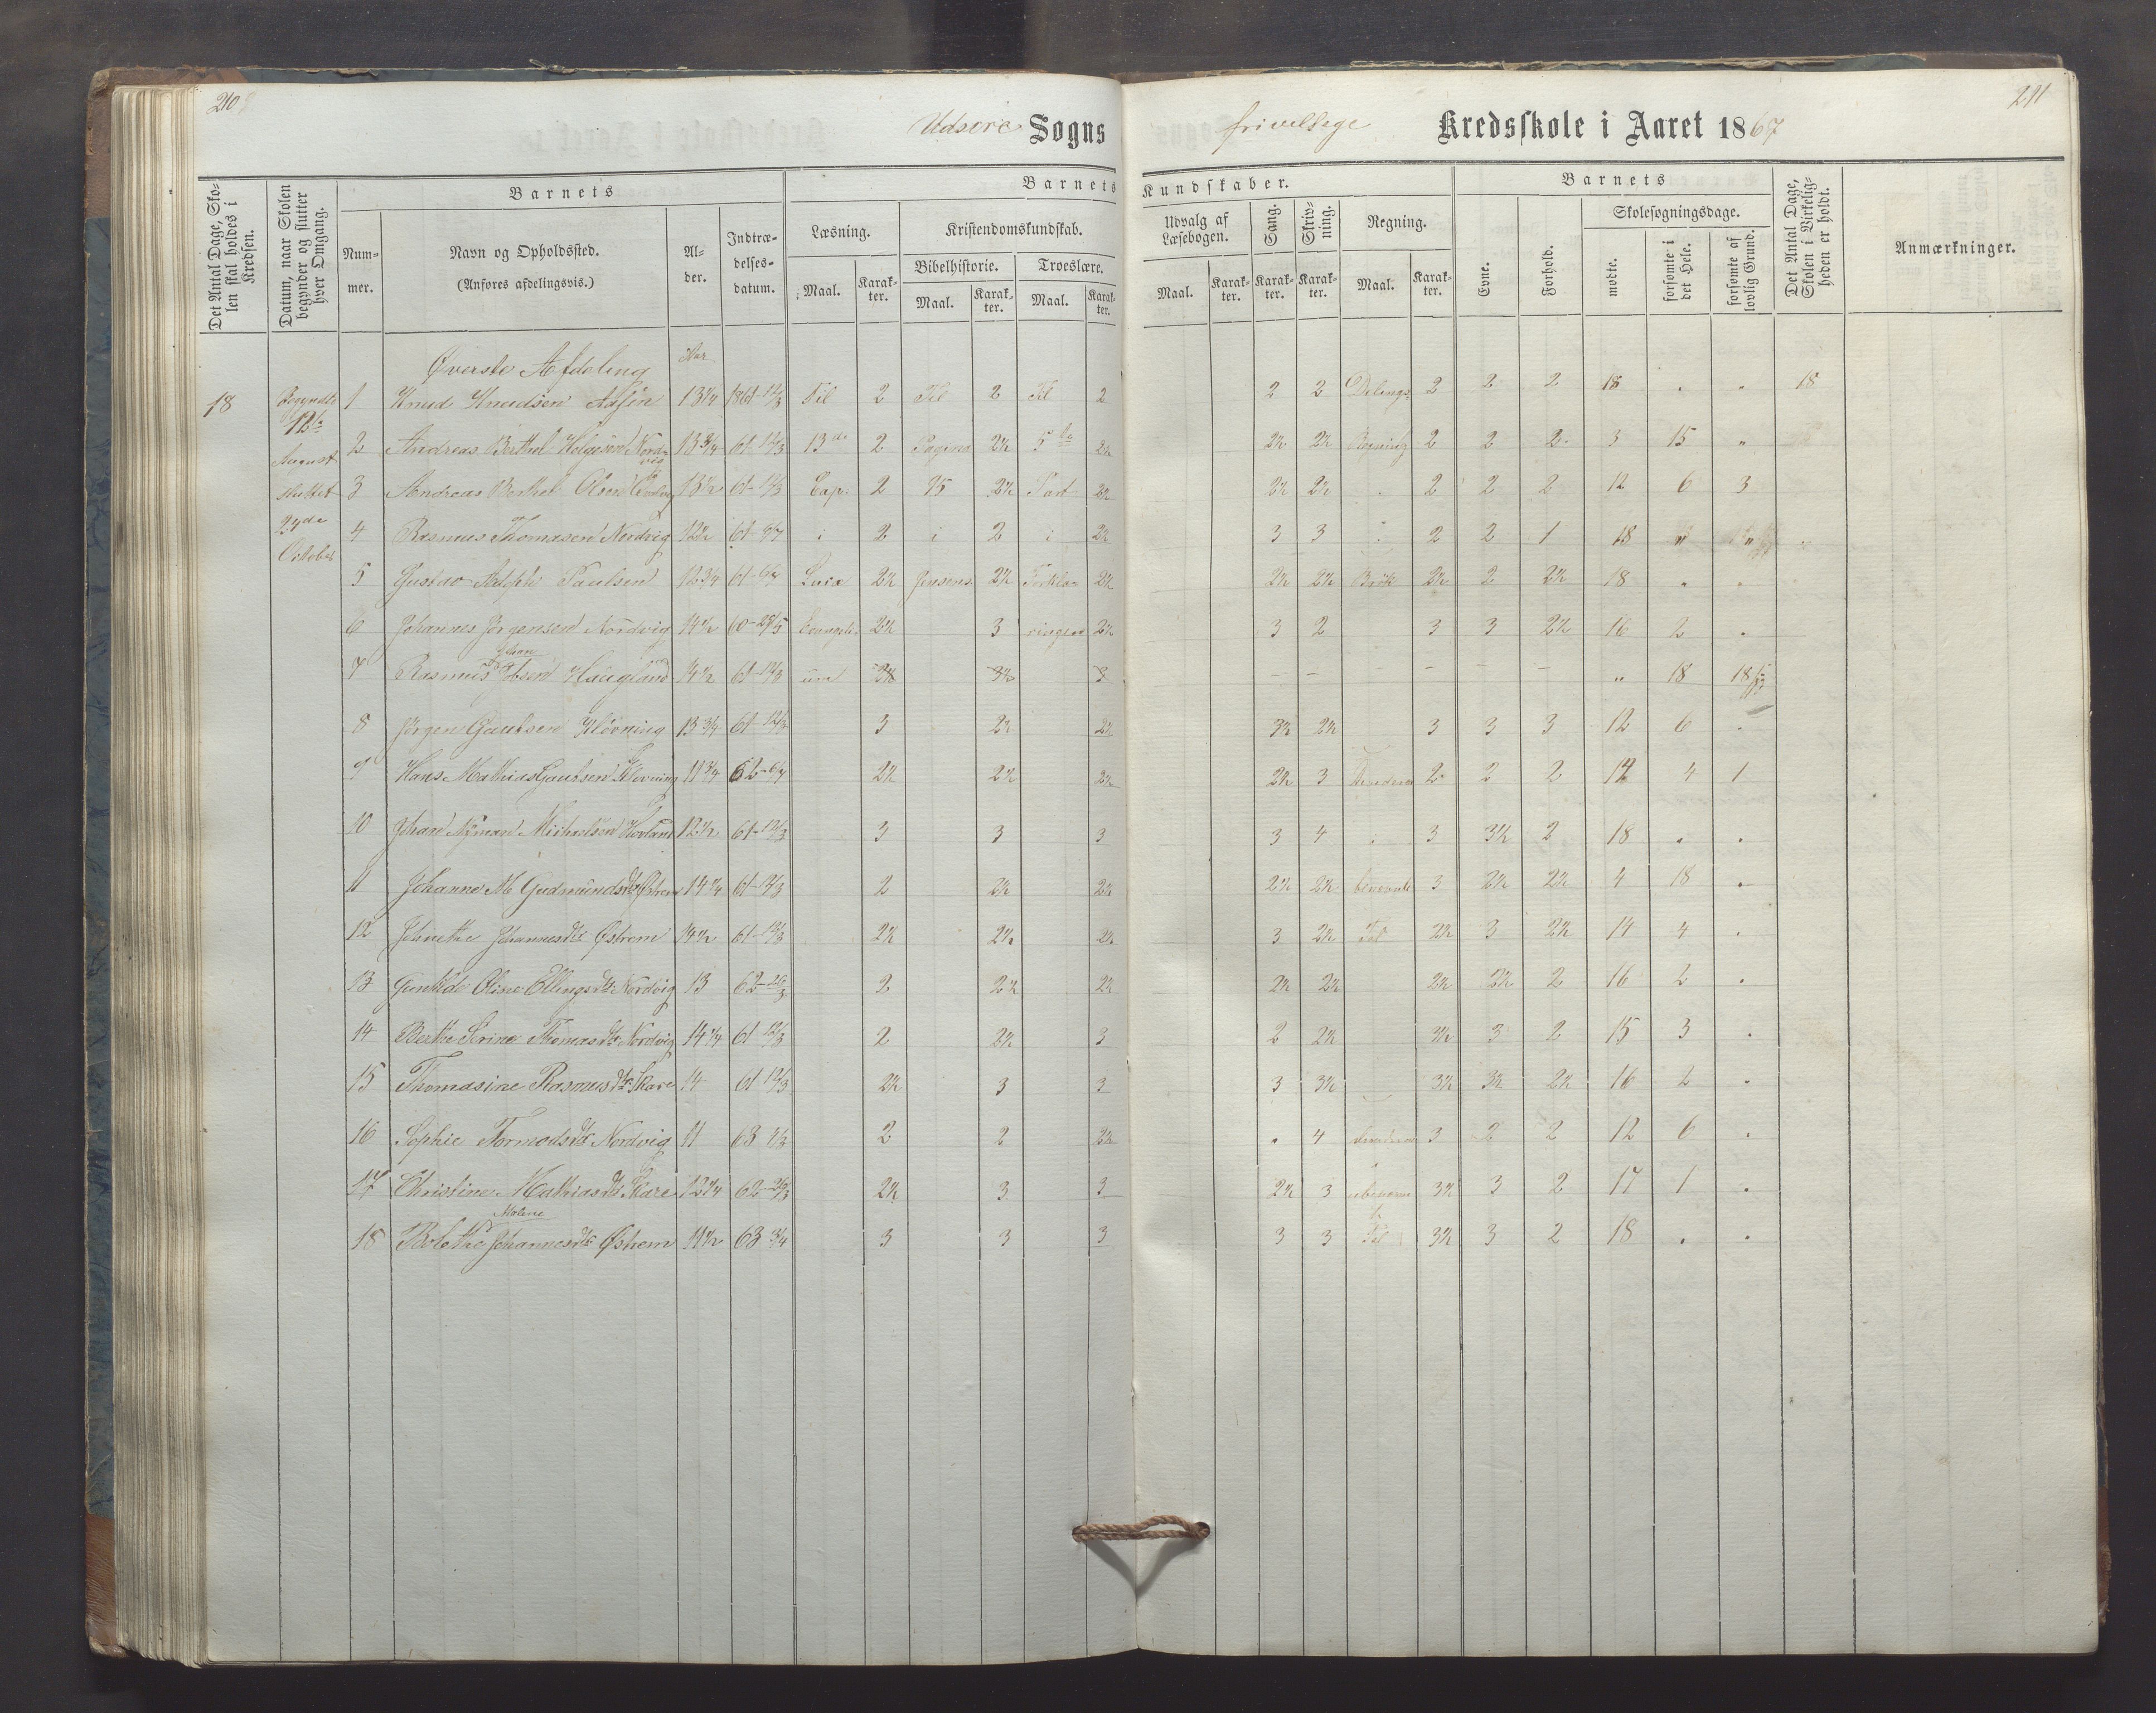 210
Udsire Sogns
frivillige Kredsskole i Aaret 1867
211
Det Antal Dage, Skolen skal holdes i Kredsen.
Datum, naar Skolen begynder og slutter hver Omgang.
Barnets
Nummer.
Navn og Opholdssted.
(Anføres afdelingsvis.)
Alder.
Indtrædelsesdatum.
Barnets Kundskaber.
Læsning.
Maal. Karakter.
Kristendomskundskab.
Bibelhistorie.
Maal. Karakter.
Troeslære.
Maal. Karakter.
Udvalg af Læsebogen.
Maal. Karakter.
Sang.
Karakter.
Skrivning.
Karakter.
Regning.
Maal. Karakter.
Barnets
Evne.
Forhold.
Skolesøgningsdage.
mødte.
forsømte i det Hele.
forsømte af lovlig Grund.
Det Antal Dage, Skolen i Virkeligheden er holdt.
Anmærkninger.
Øverste Afdeling Aar
18 Begyndte 1 Knud Knudsen 13 1/4 1861-12/3 Til 2 Til 2 Til 2 2 2 Delings- 2 2 2 18 . . 18
12te August sluttet
2 Andreas Berthel Helgesen Nordvig 13 3/4 61-12/3 13de 2 Pagina 2½ 5te 2½ 2½ 2½ Regning 2 2 2 3 15 "
3 Andreas Berthel Olsen 13½ 61-12/3 Cap. 2 75 2½ Part 2½ 2½ 2½ . 2 2 2 12 6 3
October
4 Rasmus Thomasen Nordvig 12½ 61- i 2 i 2 i 2½ 3 3 2 2 1 18 "
5 Gustav Adolph Paulsen 12 3/4 61- Luca 2½ Jensens 2½ Forkla- 2½ 2½ 2½ Brøk 2½ 2 2½ 18 . .
6 Johannes Jørgensen Nordvig 14½ 60-28/5 Evangeli- 2½ 3 ringen 2½ 3 2 3 3 2½ 16 2 .
7 Rasmus Jobsen Haugland 14½ 61-12/3 um 3½ 3½ 3 - - - - - - " 18 18
8 Jørgen Gautsen Kløvning 13 3/4 61-12/3 3 2½ 2½ 3½ 2½ 3 3 3 12 6 .
9 Hans Mathias Gautsen Kløvning 11 3/4 62- 2½ 2½ 2½ 2½ 3 2 2 2 14 4 1
10 Johan Nyman Michaelsen Hovland 12½ 61-12/3 3 3 3 3 4 . 3 3½ 2 18 . .
11 Johanne M Gudmundsdtr Østrem 14 1/4 61-12/3 2 2½ 2½ 2½ 2½ 3 2½ 2½ 4 18 .
12 Johanesdtr Østrem 14½ 61-12/3 2½ 2½ 2½ 3 2½ Tal 2½ 3 2½ 14 4 .
13 Gunhilde Oline Ellingsdtr Nordvig 13 62-26/3 2 2½ 2½ 2½ 2½ 2½ 2½ 2 16 2 .
14 Berthe Serine Thomasdtr Nordvig 14 1/4 61 12/3 2 2½ 3 2 2½ 3½ 3 2 15 3 .
15 Thomasine Rasmusdtr Skare 14 61 12/3 2½ 3 3 3 3½ 3½ 3½ 2½ 16 2 .
16 Sophie Tormodsdtr Nordvig 11 63 2 2 2½ . 4 3 2 2 12 6 .
17 Christine Mathiasdtr Skare 12 3/4 62-26/3 2½ 3 3 2½ 3 3½ 3 2 17 1 .
Malene
18 Bolethe Johannesdtr Østrem 11½ 63 3 3 3 3 3 Tal 3½ 3 2 18 . .